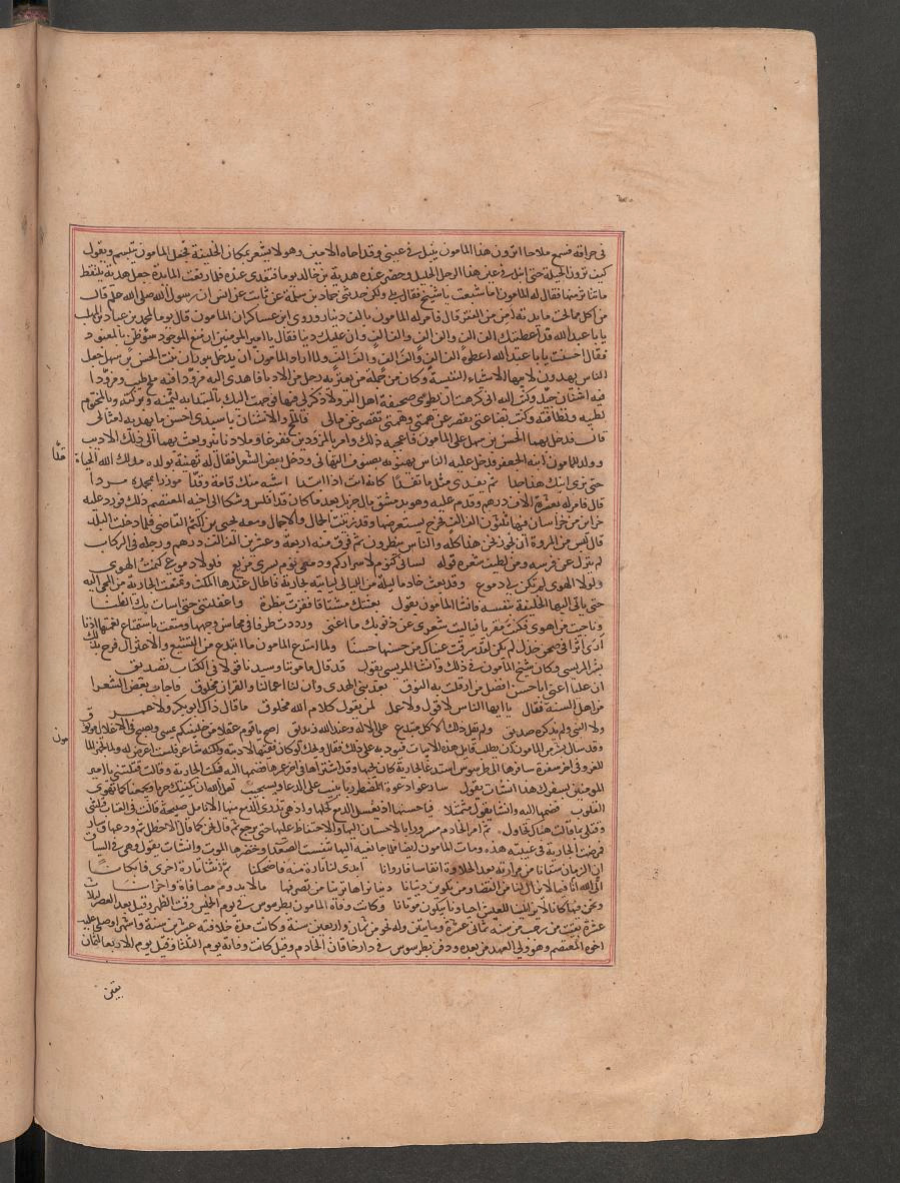 في حراقة فسمع ملاحا اترون هذا المامون ينبل في عيني وقد قتل اخاه الامين وهو لا يشعر بمكان الخليفة فجعل المامون يتبسم ويقول
كيف ترون الحيلة حتى انبل في عين هذا الرجل الجليل وحضر عنده هدبة بن خالد يوما فتغدى عنده فلما رفعت المايدة جعل هدبة يلتقط
ما تناثر منها فقال له المامون اما شبعت يا شيخ فقال بلى ولكن حدثني حماد بن سلمة عن ثابت عن انس ان رسول الله صلى الله عليه وسلم قال
من اكل ما تحت مايدته امن من الفقر قال فامر له المامون بالف دينار وروى ابن عساكر ان المامون قال يوما لمحمد بن عباد بن المهلب
يا با عبد الله قد اعطيتك الف الف والف الف والف الف وان عليك دينا فقال يا امير المومنين ان منع الموجود سوء ظن بالمعبود
فقال احسنت يا با عبد الله اعطوه الف الف والف الف والف الف ولما اراد المامون ان يدخل ببوران بنت الحسن بن سهل جعل
الناس يهدون لابيها الاشياء النفيسة وكان من جملة من يعتز به رجل من الادبا فاهدى اليه مزودا فيه ملح طيب ومزودا
فيه اشنان جيد وكتب اليه اني كرهت ان تطوى صحيفة اهل البر ولا ذكر لي فيها فوجهت اليك بالمبتدا به ليمنه وبركته وبالمختوم به
لطيبه ونظافته وكتب بضاعتي تقصر عن همتي وهمتي تقصر عن مالي فالملح والاشنان يا سيدي احسن ما يهديه امثالي
قال فدخل بهما الحسن بن سهل على المامون فاعجبه ذلك وامر بالمزودين ففرغا وملا دنانير وبعث بهما الى ذلك الاديب
وولد للمامون ابنه جعفر فدخل عليه الناس يهنونه بصنوف التهاني ودخل بعض الشعرا فقال له تهنية بولده مد لك الله الحياة
حتى ترى ابنك هذا جدا ثم يفدى مثل ما تفدا كانه انت اذا تبدا اشبه منك قامة وقدا موزرا بمجده مردا
قال فامر له بعشرة الاف درهم وقدم عليه وهو بدمشق مال جزيل بعد ما كان قد افلس وشكا الى اخيه المعتصم ذلك فورد عليه
خزاين من خراسان فيها ثلثون الف الف فخرج يستعرضها وقد زينت الجمال والاحمال ومعه يحيى بن اكثم القاضي فلما دخلت البلد
قال ليس من المروة ان نحوز نحن هذا كله والناس ينظرون ثم فرق منه اربعة وعشرين الف الف درهم ورجله في الركاب
لم ينزل عن فرسه ومن لطيف شعره قوله لساني كتوم لاسراركم ودمعي نموم بسري مذيع فلولا دموعي كتمت الهوى
ولولا الهوى لم تكن لي دموع وقد بعث خادما ليلة من الليالي لياتيه بجارية فاطال عندها المكث وتمنعت الجارية من المجي اليه
حتى ياتي اليها الخليفة بنفسه فانشا المامون يقول بعثتك مشتاقا ففزت بنظرة واغفلتني حتى اسات بك الظنا
وناجيت من اهوى فكنت مقربا فيا ليت شعري عن دنوك ما اغنى ورددت طرفا في محاسن وجهها ومتعت باستمتاع نغمتها اذنا
ارى اثرا في صحن خدك لم يكن لقد سرقت عيناك من حسنها حسنا ولما ابتدع المامون ما ابتدع من التشيع والاعتزال فرح بذلك
بشر المريسي وكان شيخ المامون في ذلك وانشا المريسي يقول قد قال مامونا وسيدنا قولا في الكتاب تصديق
ان عليا اعني ابا حسن افضل من ارقلت به النوق بعد نبي الهدى وان لنا اعمالنا والقران مخلوق فاجابه بعض الشعرا
من اهل السنة فقال يا ايها الناس لا قول ولا عمل لمن يقول كلام الله مخلوق ما قال ذاك ابو بكر ولا عمر
ولا النبي ولم يذكره صديق ولم يقل ذاك الا كل مبتدع على الاله وعند الله زنديق
وقد سال بشر من المامون ان يطلب قايل هذه الابيات فيودبه على ذلك فقال ويحك لو كان فقيها لادبته ولكنه شاعر فلست اعرض له ولما تجهز المامون
للغزو في اخر سفرة سافرها الى طرسوس استدعى الجارية كان يحبها وقد اشتراها في اخر عمره فضمها اليه فبكت الجارية وقالت قتلتني يا امير
المومنين بسفرك هذا انشات تقول سادعو ادعوة المضطر ربا يثيب على الدعاء ويستجيب لعل الله ان يكفيك حربا ويجمعنا كما تهوى
القلوب فضمها اليه وانشا يقول متمثلا فيا حسنها اذ يغسل الدمع كحلها واذ هي تذري الدمع منها الانامل صبيحة قالت في العتاب قتلتني
وقتلي بما قالت هناك تحاول ثم امر الخادم مسرورا بالاحسان اليها والاحتفاظ عليها حتى يرجع ثم قال نحن كما قال الاخطل ثم ودعها وسار
فمرضت الجارية في غيبته هذه ومات المامون ايضا فلما جا نعيه اليها تنفست الصعدا وحضرها الموت وانشات تقول وهي في السياق
ان الزمان سقانا من مرارته بعد الحلاوة انفاسا فاروانا ابدى لنا تارة منه فاضحكنا ثم انثنى تارة اخرى فابكانا
انا الى الله فيما لا يزال لنا من القضا ومن تكوين دنيانا دنيا نراها ترينا من تصرفها ما لا يدوم مصافاة واحزانا
ونحن فيها كانا لا نزايلها للعيش احيا وما يبكون موتانا وكانت وفاة المامون بطرسوس في يوم الخميس وقت الظهر وقيل بعد العصر لثلاث
عشرة بقيت من رجب من سنة ثماني عشرة وماتين وله نحو من ثمان واربعين سنة وكانت مدة خلافته عشرين سنة واشهرا وصلى عليه
اخوه المعتصم وهو ولي العهد من بعده ودفن بطرسوس في دار خاقان الخادم وقيل كانت وفاته يوم الثلثا وقيل يوم الاربعا لثمان
بقين